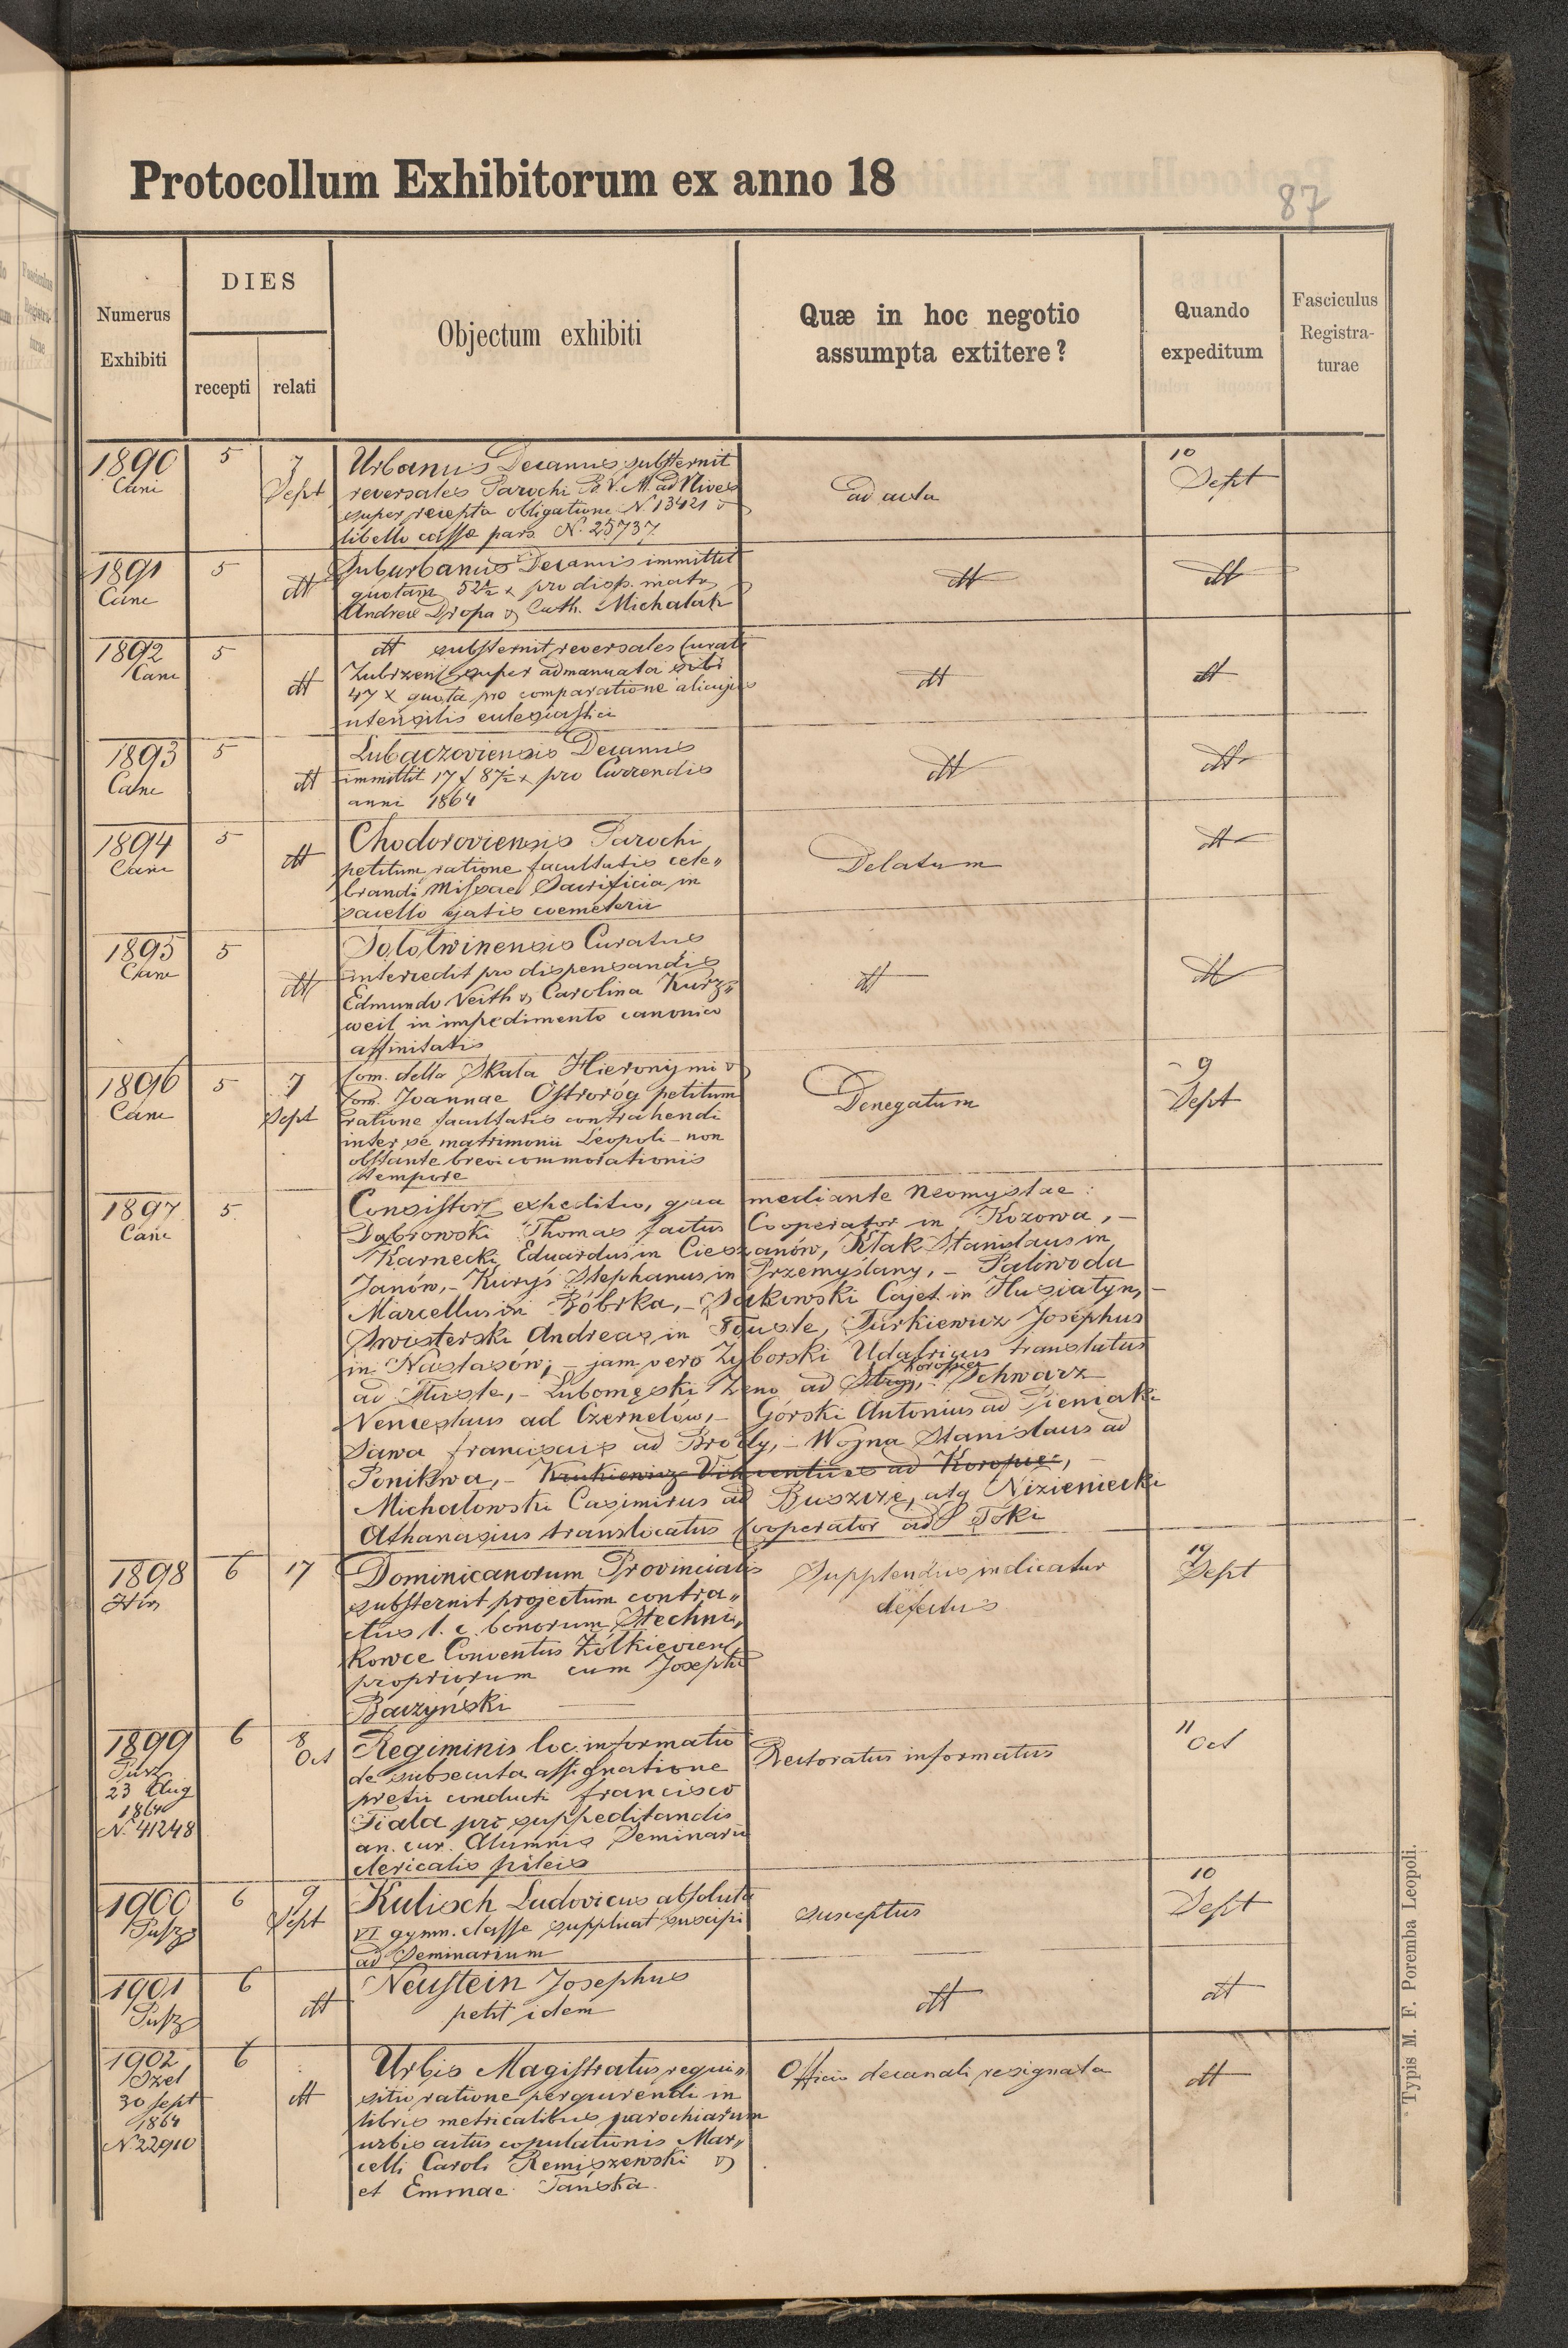 Protocollum Exhibitorum ex anno 18
87
Numerus Exhibiti
DIES
recepti
relati
Objectum exhibiti
Quæ in hoc negotio assumpta extitere?
Quando expeditum
Fasciculus Registra-turae
1890 5 7 Urbanus Decanus substernit 10
Sept reversales Parochi B. V. M. ad Nives ad acta Sept
super recepta obligatione N. 13421 &
libello cassæ pars. N. 25737.
1891 5 Suburbanus Decanus immittit
dtt quotam 52½ x pro disp. matr dtt dtt
Andreæ Dropa & Cath. Michalak
1892 5 dtt substernit reversales Curati
dtt super admanuata sibi dtt dtt
47 x quota pro comparatione alicujus
utensilis eclesiastici
1893 5 Lubaczoviensis Decanus
dtt immittit 17 f 87½ x pro Currendis dtt dtt
anni 1864
1894 5 Chodoroviensis Parochi dtt
dtt petitum ratione facultatis cele„ Delatum
brandi Missae Sacrificia in
sacello coemeterii
1895 5 Solotwinensis Curatus
dtt intercedit pro dispensandis dtt dtt
Edmundo Veith & Carolina Kurz„
weil in impedimento canonico
affinitatis
1896 5 7 Com. della Skala Hieronymi & 9
Sept Com. Joannae Ostroróg petitum Denegatum Sept
ratione facultatis contrahendi
inter se matrimonii Leopoli – non
obstante brevi commorationis
tempore
1897 5 Consistorz expeditio, qua mediante Neomystae:
Dąbrowski Thomas factus Cooperator in Kozowa, –
Karnecki Eduardus in Cieszanów, Kłak Stanislaus in
Janów, – Kuryś Stephanus in Przemyślany, – Paliwoda
Marcellus in Bóbrka, – Sakowski Cajet. in Husiatyn, –
Swisterski Andreas in Touste, Turkiewicz Josephus
in Nastasów; – jam vero Zyborski Udalricus translatus
Koropiec
ad Tłuste, – Lubomęski Zeno ad Stryj, – Schwarz
Venceslaus ad Czernelów, – Górski Antonius ad Pieniaki
Sawa Franciscus ad Brody, – Wojna Stanislaus ad
Ponikwa, – Krukiewicz Vincentius ad Koropiec, –
Michałowski Casimirus ad Buszcze, atq Nizieniecki
Athanasius translocatus Cooperator ad Toki
1898 6 17 Dominicanorum Provincialis Supplendus indicatur 19
substernit projectum contra„ defectus Sept
ctus l. c. bonorum Stechni„
kowce Conventus Żółkieviens
propriorum cum Josepho
Baczyński
1899 6 8 Regiminis loc. informatio 11
Oct de subsecuta assignatione Rectoratus informatus Oct
23 Aug pretii conducti Francisco
1864 Fiala pro suppeditandis
N. 41248 an. cur. Alumnis Seminarii
clericalis pileis
1900 6 9 Kulisch Ludovicus absoluta 10
Sept VI gymn. classe supplicat suscipi susceptus Sept
ad Seminarium
1901 6 Neustein Josephus
dtt petit idem dtt dtt
1902 6 Urbis Magistratus requi„ Officio decanali resignata
30 Sept dtt sitio ratione perquirendi in dtt
1864 libris metricalibus parochiarum
N. 22910 urbis actus copulationis Mar„
celli Caroli Remiszewski &
et Emmae Tańska.
Typis M. F. Poremba Leopoli.